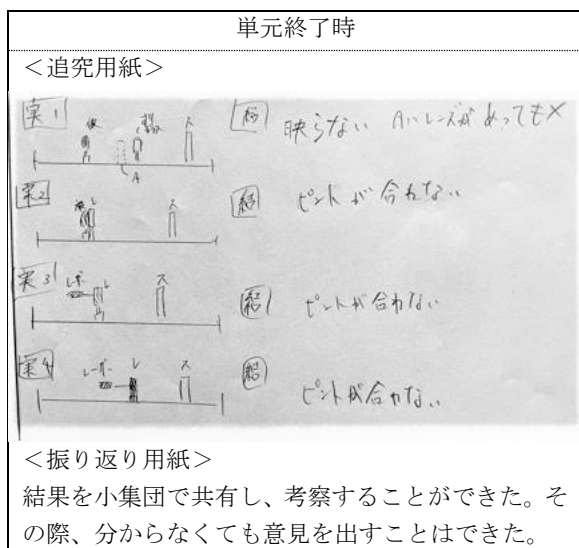 単元終了時
<追究用紙>
実1 ス A 結 映らない Aにレンズがあっても×
実2 レ ス 結 ピントが合わない
実3 レ ス 結 ピントが合わない
実4 レーザー レ ス 結 ピントが合わない
<振り返り用紙>
結果を小集団で共有し、考察することができた。そ
の際、分からなくても意見を出すことはできた。